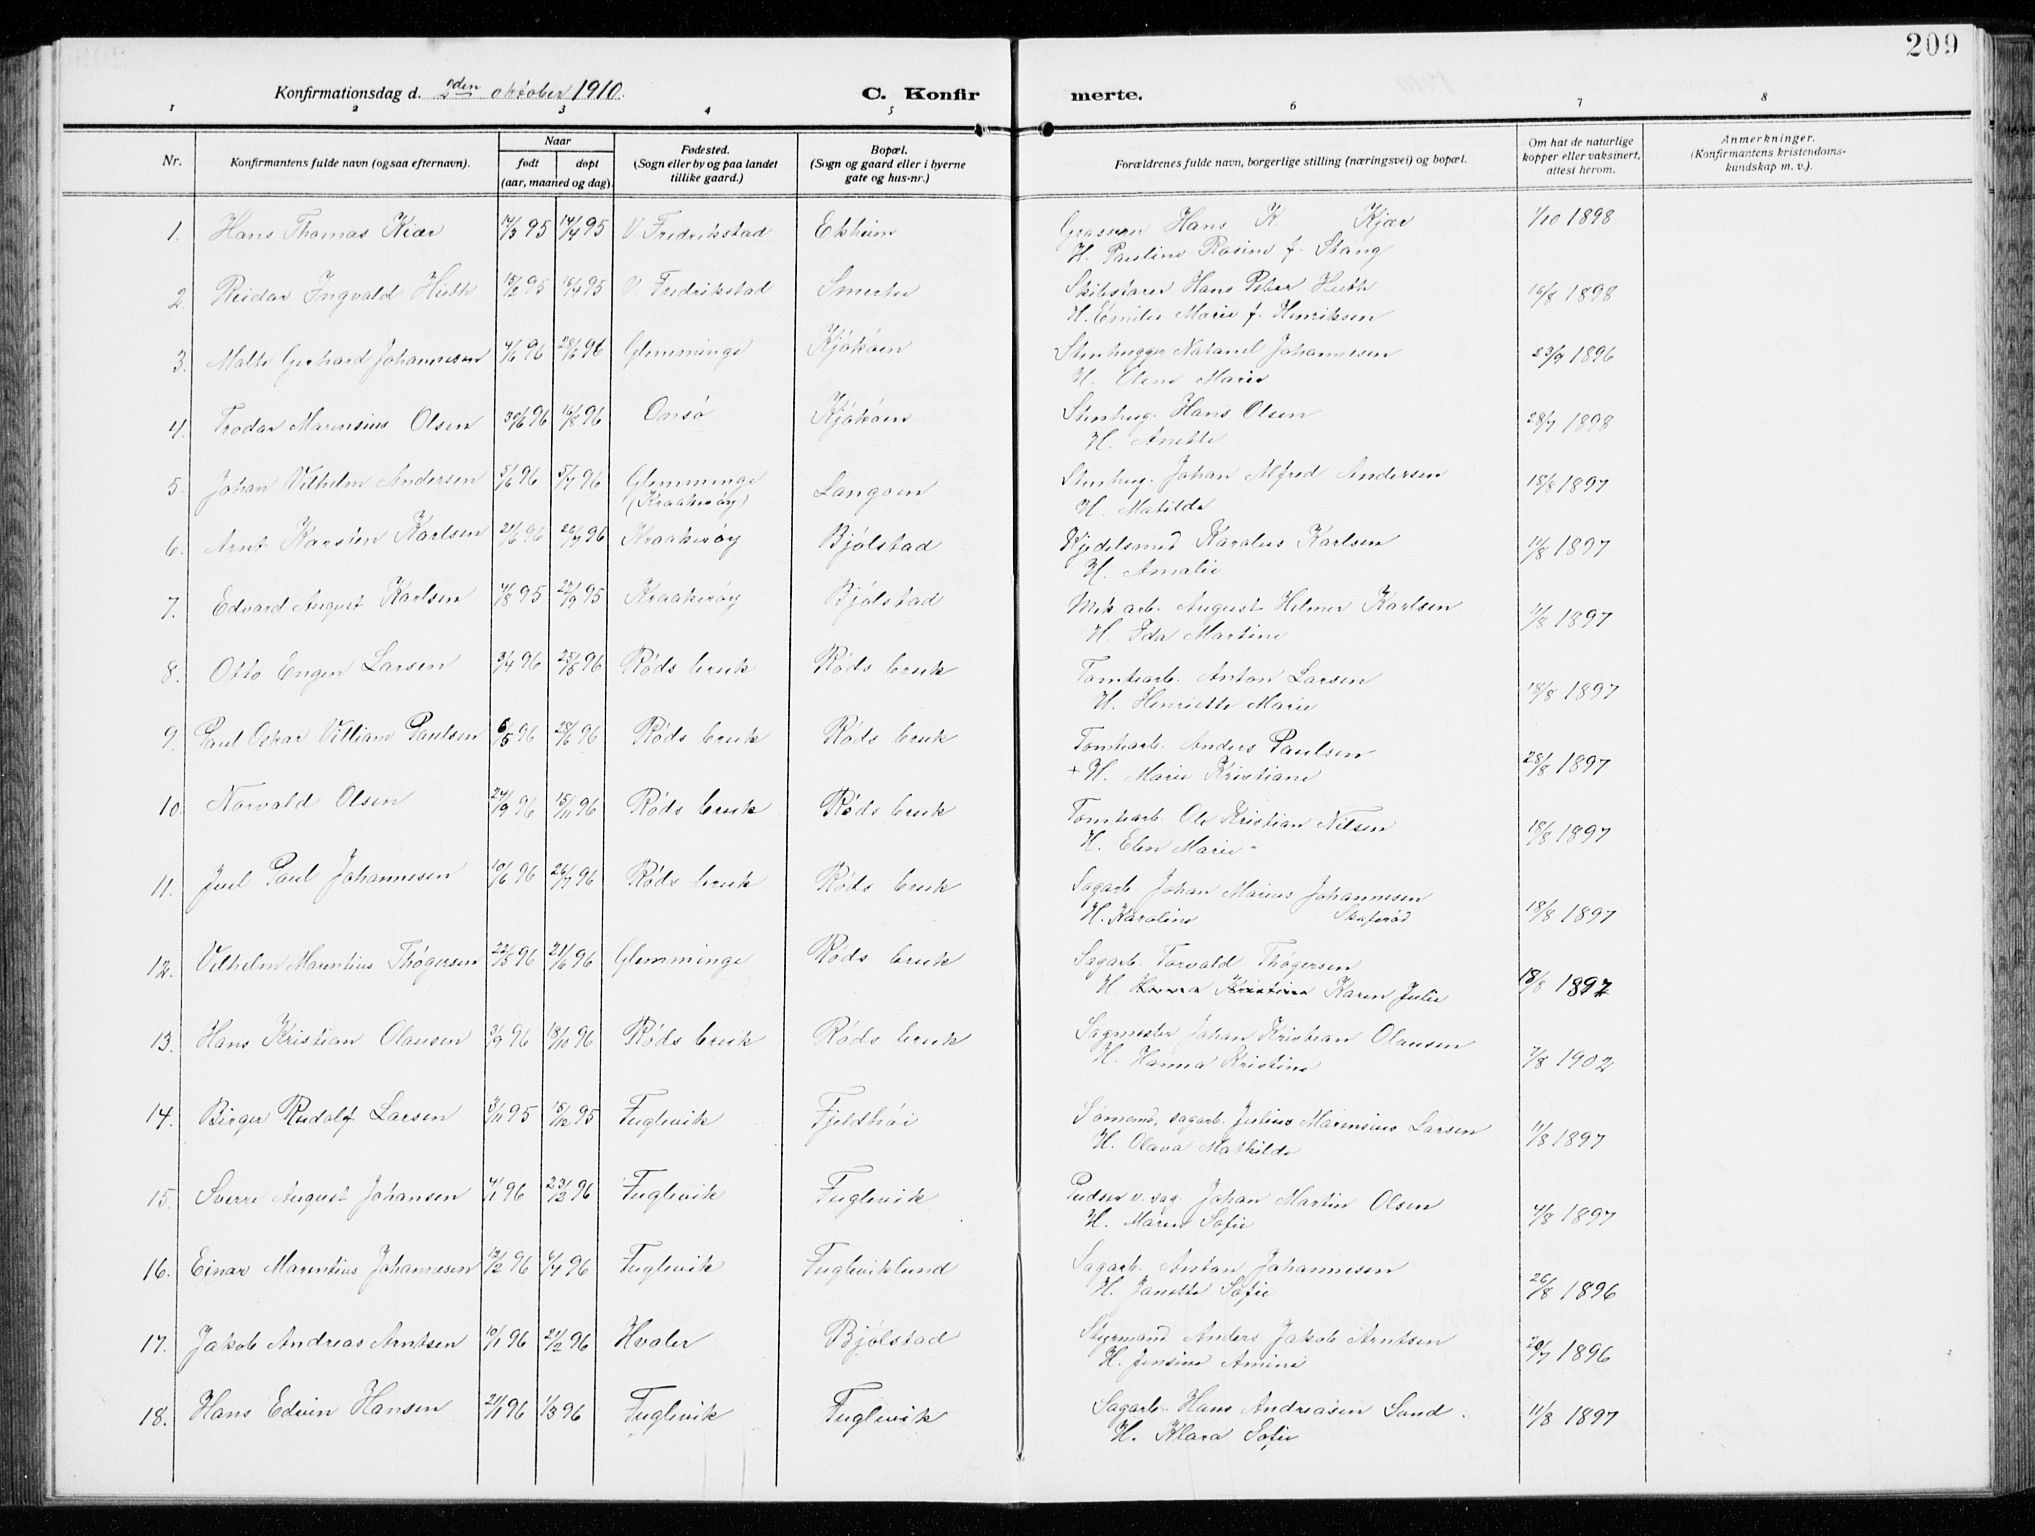 209
Konfirmationsdag d. 2den oktober 1910. C. Konfirmerte.
1 2 3 4 5 6 7 8
Nr. Konfirmantens fulde navn (ogsaa efternavn). Naar født døpt (aar, maaned og dag). Fødested. (Sogn eller by og paa landet tillike gaard.) Bopæl. (Sogn og gaard eller i byerne gate og hus-nr.) Forældrenes fulde navn, borgerlige stilling (næringsvei) og bopæl. Om hat de naturlige kopper eller vaksinert, attest herom. Anmerkninger. (Konfirmantens kristendoms-kundskap m. v.).
1. Hans Thomas Kiær 95 14/4 95 V. Fredrikstad Ekheim Grosserer Hans K. Kjær 1/10 1898
H. Pauline Rosine f. Stang
2. Reidar Ingvald Huth 15/2 95 95 V. Fredrikstad Smertu Skibsfører Hans Peter Huth 16/8 1898
H. Emilie Marie f. Henriksen
3. Malte Gerhard Johannesen 4/6 96 28/6 96 Glemminge Kjøkøen Stenhugger Natanel Johannesen 23/9 1896
H. Olene Marie
4. Frodar Marensius Olsen 30/6 96 16/8 96 Onsø Kjøkøen Stenhug. Hans Olsen 28/7 1898
H. Anette
5. Johan Vilhelm Andersen 5/6 96 5/7 96 Glemminge (Kraakerøy) Langøen Stenhug. Johan Alfred Andersen 18/8 1897
H. Matilde
6. Arnt Karsten Karlsen 21/6 96 26/7 96 Kraakerøy Bjølstad Kjedelsmed Karolius Karlsen 11/8 1897
H. Amalie
7. Edvard August Karlsen 4/8 95 22/9 95 Kraakerøy Bjølstad Mek arb. August Helmer Karlsen 11/8 1897
H. Ida Martine
8. Otto Engen Larsen 3/4 96 25/5 96 Røds bruk Røds bruk Tomtearb. Anton Larsen 18/8 1897
H. Henriette Marie
9. Paul Oskar Villiam Paulsen 6/5 96 28/6 96 Røds bruk Røds bruk Tomtearb. Anders Paulsen 28/8 1897
+ H. Marie Kristiane
10. Norvald Olsen 24/9 96 15/11 96 Røds bruk Røds bruk Tomtearb. Ole Kristian Nilsen 18/8 1897
H. Elen Marie
11. Juel Paul Johannesen 10/6 96 26/7 96 Røds bruk Røds bruk Sagarb. Johan Marius Johannesen 18/8 1897
H. Karoline
12. Vilhelm Marentius Thøgersen 22/5 96 21/6 96 Glemminge Røds bruk Sagarb. Torvald Thøgersen 18/8 1897
H. Hanna Kristine Karen Julie
13. Hans Kristian Olausen 3/9 96 18/10 96 Røds bruk Røds bruk Sagmester Johan Kristian Olausen 7/8 1902
H. Hanna Kristine
14. Birger Rudolf Larsen 3/11 95 15/12 95 Fuglevik Fjeldhøi Sømand, sagarb. Julius Marensius Larsen 11/8 1897
H. Olava Mathilde
15. Sverre August Johansen 4/1 96 23/2 96 Fuglevik Fuglevik Pudser v. sag. Johan Martin Olsen 4/8 1897
H. Maren Sofie
16. Einar Marentius Johannesen 12/2 96 4/4 96 Fuglevik Fugleviklund Sagarb. Anton Johannesen 26/8 1896
H. Janette Sofie
17. Jakob Andreas Arntsen 10/1 96 21/2 96 Hvaler Bjølstad Styrmand Anders Jakob Arntsen 20/7 1896
H. Jensine Amine
18. Hans Edvin Hansen 21/1 96 1/3 96 Fuglevik Fuglevik Sagarb. Hans Andreasen Sund. 11/8 1897
H. Klara Sofie